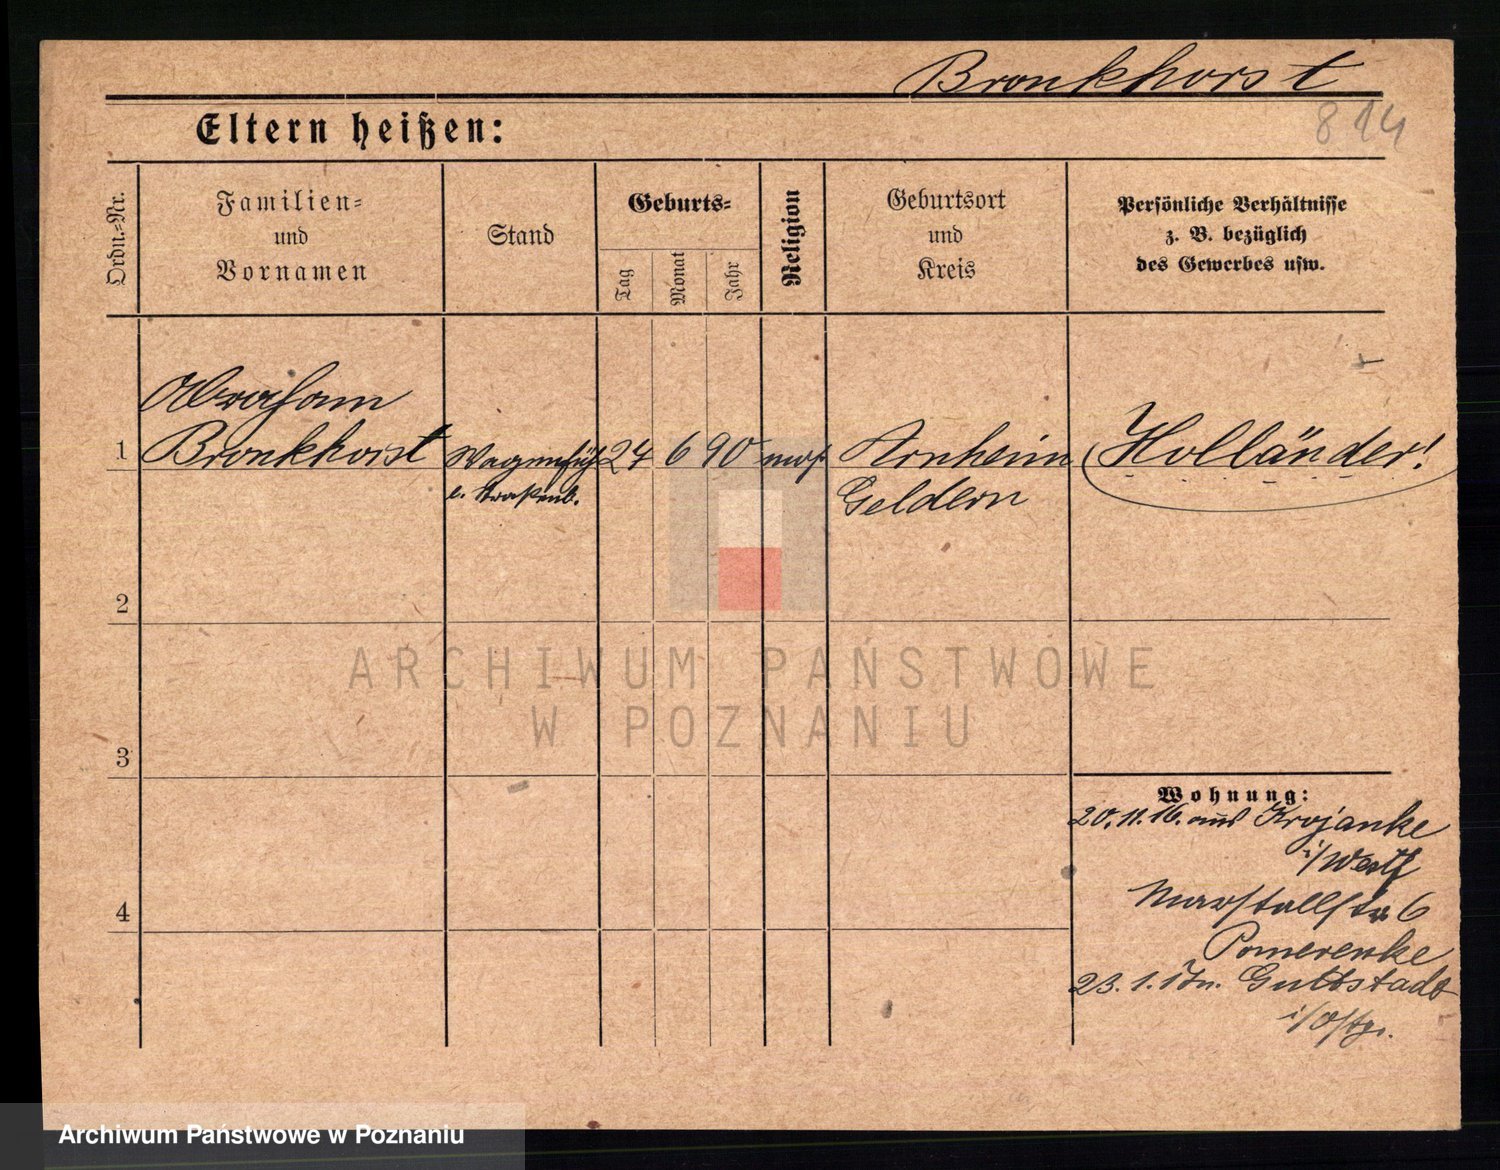 Bronkhorst
814
Eltern heißen:
Ordn.-Nr.
Familien-
und
Vornamen
Stand
Geburts-
Tag
Monat
Jahr
Religion
Geburtsort
und
Kreis
Persönliche Verhältnisse
z. B. bezüglich
des Gewerbes usw.
Abraham
1 Bronkhorst Wagenfüh 24 6 90 mos. Arnheim Holländer!
e. Straßenb. Geldern
2
ARCHIWUM PAŃSTWOWE
W POZNANIU
3
Wohnung:
20.11.16. aus Krojanke
i/Westf
4 Marstallstr 6
Pomerenke
23.1.17 n. Guttstadt
i/Ostpr.
Archiwum Państwowe w Poznaniu